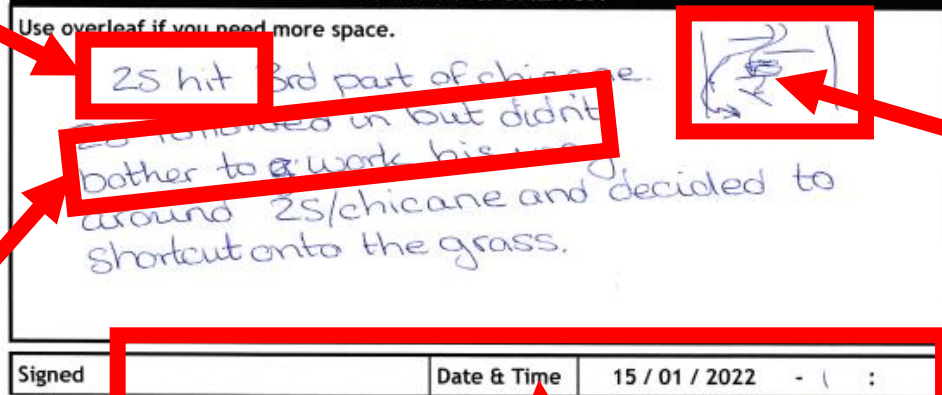 Use overleaf if you need more space.
25 hit 3rd part of chicane.
followed in but didn't
bother to work his way
around 25/chicane and decided to
shortcut onto the grass.
Signed Date & Time 15 / 01 / 2022 - :